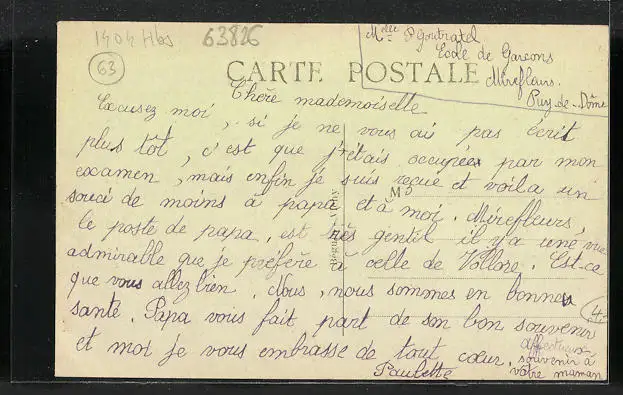 1404 Hbs
63826
63
Mlle P Goutratel
Ecole de Garcons
Mirefleurs
Puy-de-Dôme
CARTE POSTALE
Chère mademoiselle
Excusez moi, si je ne vous ai pas écrit
plus tôt, c'est que j'étais occupée par mon
examen, mais enfin je suis reçue et voila un
souci de moins à papa et à moi. Mirefleurs,
le poste de papa, est très gentil il y a une vue
admirable que je préfère à celle de Vollore. Est-ce
que vous allez bien. Nous, nous sommes en bonne
santé. Papa vous fait part de son bon souvenir
et moi je vous embrasse de tout cœur.
Paulette
affectueux
souvenir à
votre maman
M
Vichy